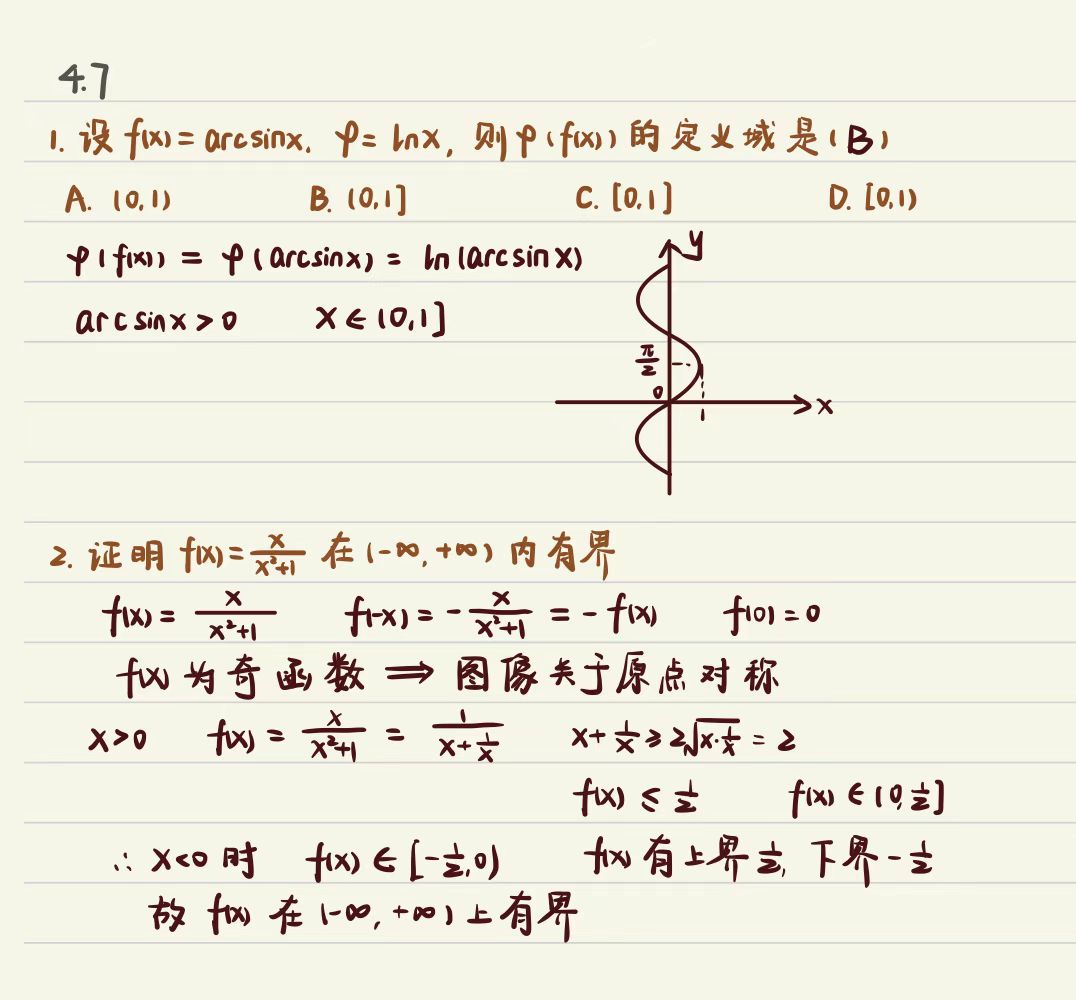 4.7
1. 设 f(x) = arcsinx. φ = lnx, 则 φ(f(x)) 的定义域是 (B)
A. (0,1) B. (0,1] C. [0,1] D. [0,1)
φ(f(x)) = φ(arcsinx) = ln(arcsinx)
arcsinx > 0 x ∈ (0,1]
y
π/2
0
1
x
2. 证明 f(x) = x/(x²+1) 在 (-∞, +∞) 内有界
f(x) = x/(x²+1) f(-x) = - x/(x²+1) = - f(x) f(0) = 0
f(x) 为奇函数 ⟹ 图像关于原点对称
x>0 f(x) = x/(x²+1) = 1/(x+1/x) x + 1/x ≥ 2√(x·1/x) = 2
f(x) ≤ 1/2 f(x) ∈ (0, 1/2]
∴ x<0 时 f(x) ∈ [-1/2, 0) f(x) 有上界 1/2, 下界 -1/2
故 f(x) 在 (-∞, +∞) 上有界